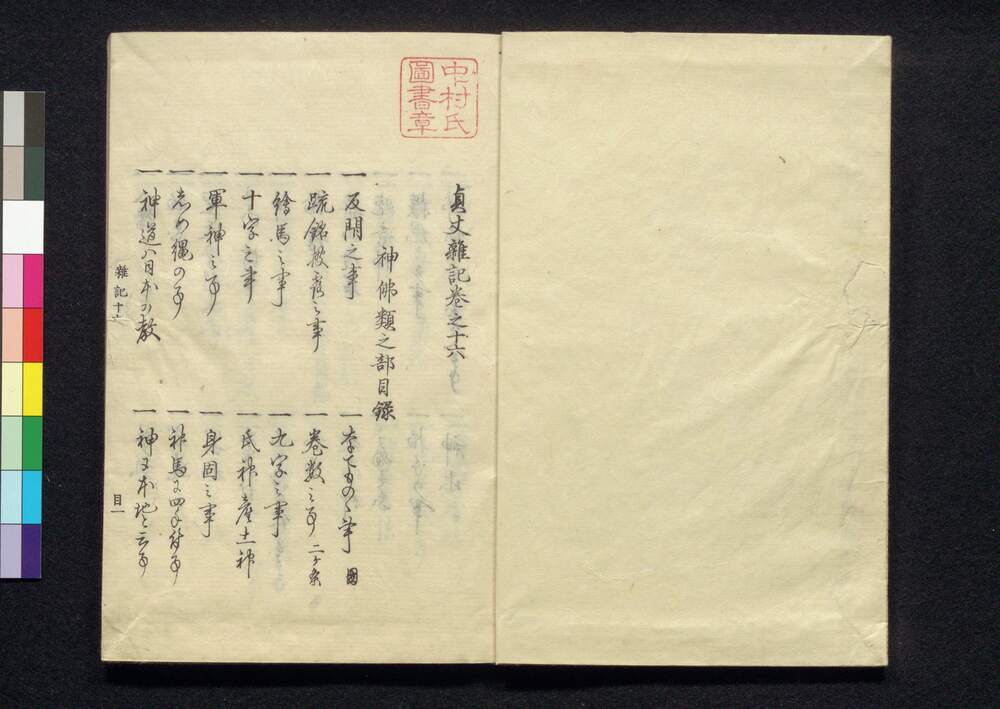 中村氏
圖書章
貞丈雜記卷之十六
神佛類之部目録
一 反閇之事
一 幸ものゝ事 圖
一 䟽銘披露之事
一 卷数之事 二ケ条
一 繪馬之事
一 九字之事
一 十字之事
一 氏神産土神
一 軍神之事
一 身固之事
一 志め縄の事
一 神馬に四手付事
一 神道ハ日本の教
一 神に本地と云事
雜記十六
目一